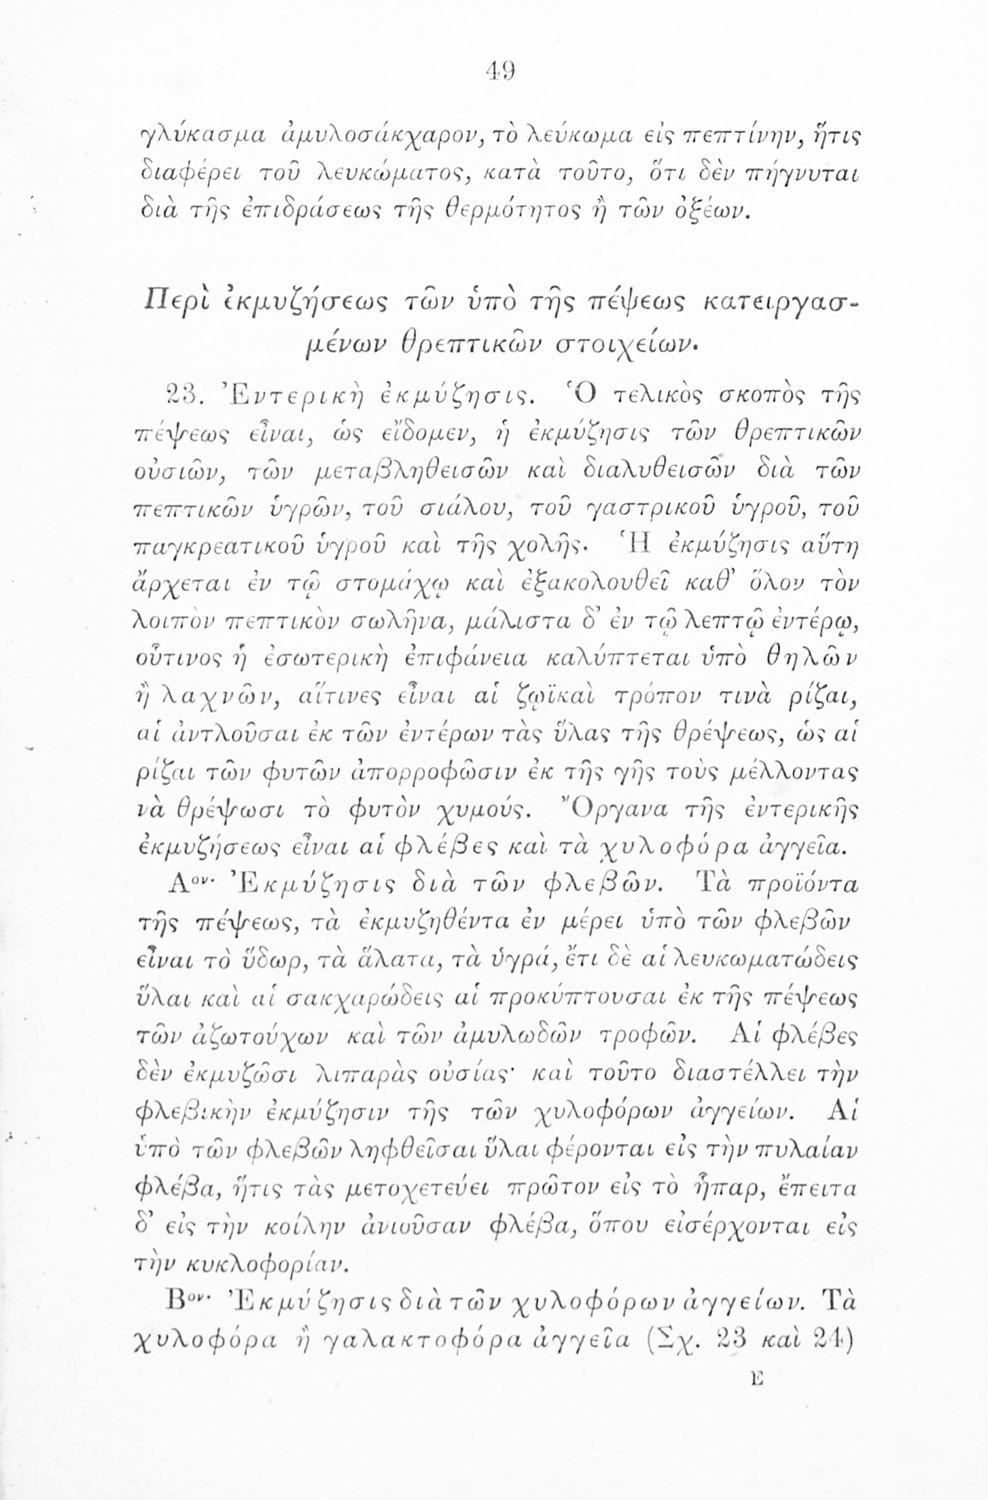 49
γλύκασμα ἀμυλοσάκχαρον, τὸ λεύκωμα εἰς πεπτίνην, ἥτις
διαφέρει τοῦ λευκώματος, κατὰ τοῦτο, ὅτι δὲν πήγνυται
διὰ τῆς ἐπιδράσεως τῆς θερμότητος ἢ τῶν ὀξέων.
Περὶ ἐκμυζήσεως τῶν ὑπὸ τῆς πέψεως κατειργασ-
μένων θρεπτικῶν στοιχείων.
23. Ἐντερικὴ ἐκμύζησις. Ὁ τελικὸς σκοπὸς τῆς
πέψεως εἶναι, ὡς εἴδομεν, ἡ ἐκμύζησις τῶν θρεπτικῶν
οὐσιῶν, τῶν μεταβληθεισῶν καὶ διαλυθεισῶν διὰ τῶν
πεπτικῶν ὑγρῶν, τοῦ σιάλου, τοῦ γαστρικοῦ ὑγροῦ, τοῦ
παγκρεατικοῦ ὑγροῦ καὶ τῆς χολῆς. Ἡ ἐκμύζησις αὕτη
ἄρχεται ἐν τῷ στομάχῳ καὶ ἐξακολουθεῖ καθ’ ὅλον τὸν
λοιπὸν πεπτικὸν σωλῆνα, μάλιστα δ’ ἐν τῷ λεπτῷ ἐντέρῳ,
οὗτινος ἡ ἐσωτερικὴ ἐπιφάνεια καλύπτεται ὑπὸ θηλῶν
ἢ λαχνῶν, αἵτινες εἶναι αἱ ζῳϊκαὶ τρόπον τινὰ ρίζαι,
αἱ ἀντλοῦσαι ἐκ τῶν ἐντέρων τὰς ὕλας τῆς θρέψεως, ὡς αἱ
ρίζαι τῶν φυτῶν ἀπορροφῶσιν ἐκ τῆς γῆς τοὺς μέλλοντας
νὰ θρέψωσι τὸ φυτὸν χυμούς. Ὄργανα τῆς ἐντερικῆς
ἐκμυζήσεως εἶναι αἱ φλέβες καὶ τὰ χυλοφόρα ἀγγεῖα.
Αον· Ἐκμύζησις διὰ τῶν φλεβῶν. Τὰ προϊόντα
τῆς πέψεως, τὰ ἐκμυζηθέντα ἐν μέρει ὑπὸ τῶν φλεβῶν
εἶναι τὸ ὕδωρ, τὰ ἅλατα, τὰ ὑγρά, ἔτι δὲ αἱ λευκωματώδεις
ὕλαι καὶ αἱ σακχαρώδεις αἱ προκύπτουσαι ἐκ τῆς πέψεως
τῶν ἀζωτούχων καὶ τῶν ἀμυλωδῶν τροφῶν. Αἱ φλέβες
δὲν ἐκμυζῶσι λιπαρὰς οὐσίας· καὶ τοῦτο διαστέλλει τὴν
φλεβικὴν ἐκμύζησιν τῆς τῶν χυλοφόρων ἀγγείων. Αἱ
ὑπὸ τῶν φλεβῶν ληφθεῖσαι ὕλαι φέρονται εἰς τὴν πυλαίαν
φλέβα, ἥτις τὰς μετοχετεύει πρῶτον εἰς τὸ ἧπαρ, ἔπειτα
δ’ εἰς τὴν κοίλην ἀνιοῦσαν φλέβα, ὅπου εἰσέρχονται εἰς
τὴν κυκλοφορίαν.
Βον· Ἐκμύζησις διὰ τῶν χυλοφόρων ἀγγείων. Τὰ
χυλοφόρα ἢ γαλακτοφόρα ἀγγεῖα (Σχ. 23 καὶ 24)
Ε